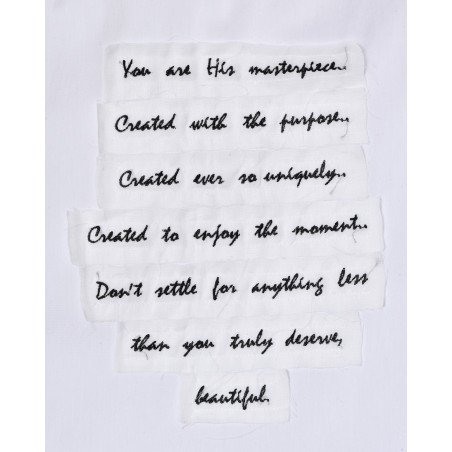 You are His masterpiece..
Created with the purpose..
Created ever so uniquely..
Created to enjoy the moment..
Don't settle for anything less
than you truly deserve,
beautiful.